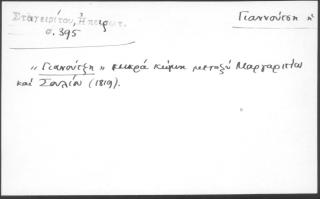 Σταγειρίτου, Ηπειρωτ.
σ. 395
Γιαννούτση ἡ
"Γιανούτζη" μικρά κώμη μεταξύ Μαργαριτίου
καί Σουλίου (1819).